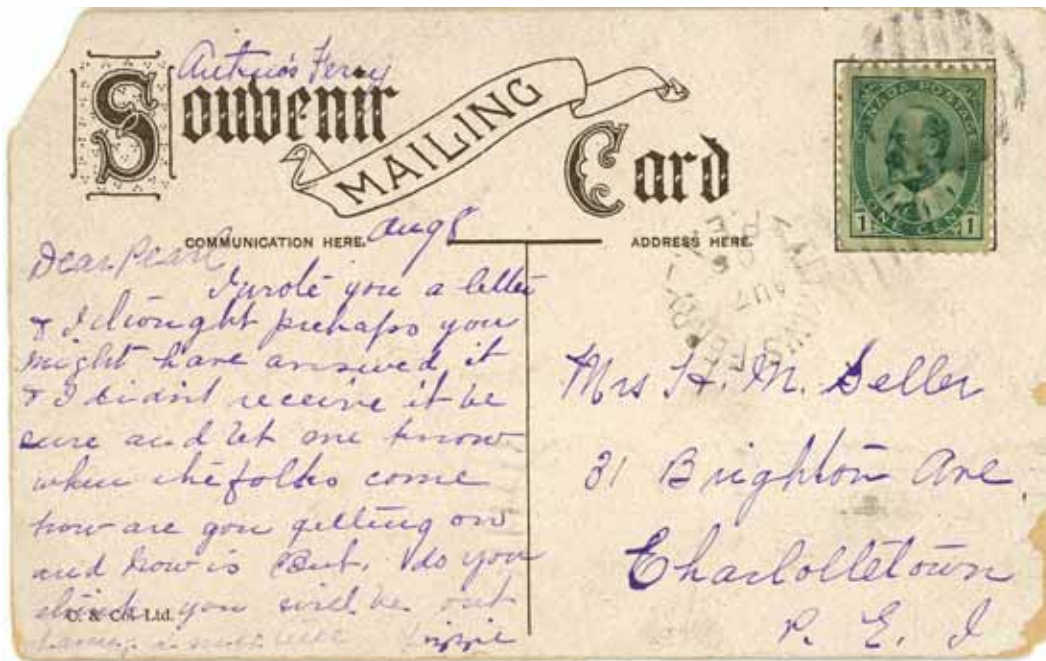 Ferry
Souvenir
MAILING
Card
CANADA POSTAGE
1 ONE CENT 1
COMMUNICATION HERE.
ADDRESS HERE.
Aug 8
Dear Pearl
I wrote you a letter
& I thought perhaps you
might have answed it
& I didnt receive it be
sure and let me know
when the folks come
how are you getting on
and how is do you
think you will be out
C. & Co. Ltd.
Mrs H. M. Seller
31 Brighton Ave
Charlottetown
P. E. I